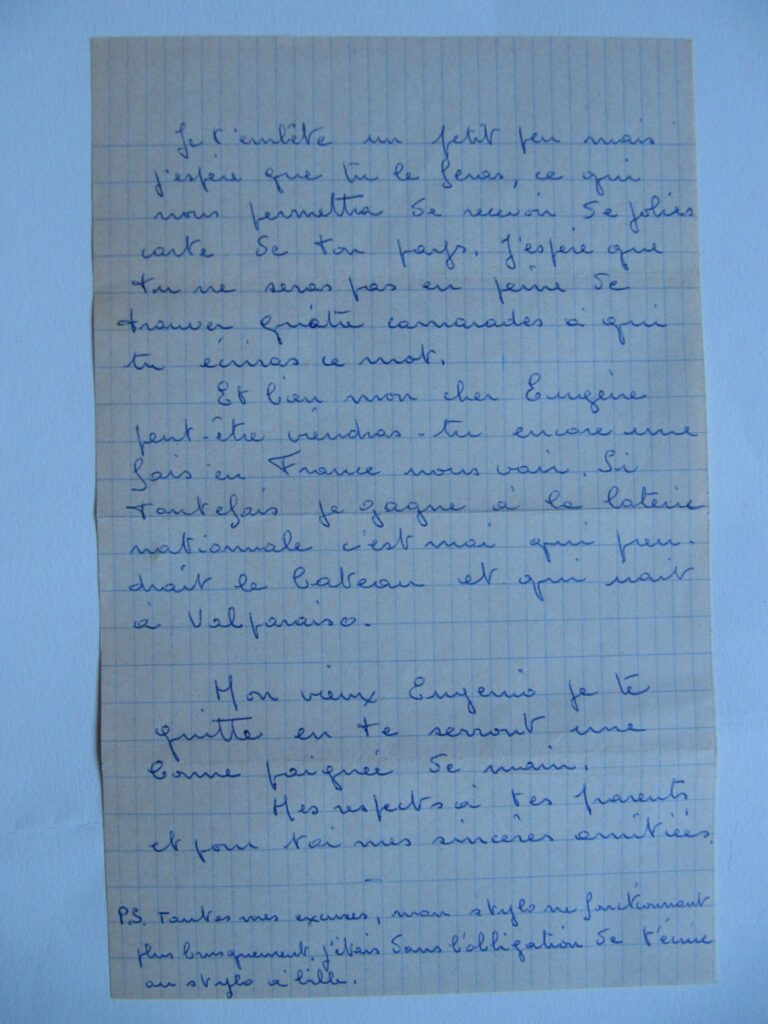 Je t'embête un petit peu mais
j'espère que tu le feras, ce qui
nous permettra de recevoir de jolies
carte de ton pays. J'espère que
tu ne seras pas en peine de
trouver quatre camarades à qui
tu écriras ce mot.
Et bien mon cher Eugène
peut-être viendras-tu encore une
fois en France nous voir. Si
toutefois je gagne à la loterie
nationnale c'est moi qui pren-
drait le bateau et qui irait
à Valparaiso.
Mon vieux Eugenio je te
quitte en te serrant une
bonne poignée de main.
Mes respects à tes parents
et pour toi mes sincères amitiées.
P.S. Toutes mes excuses, mon stylo ne fonctionnant
plus brusquement, j'étais dans l'obligation de t'écrire
au stylo à bille.